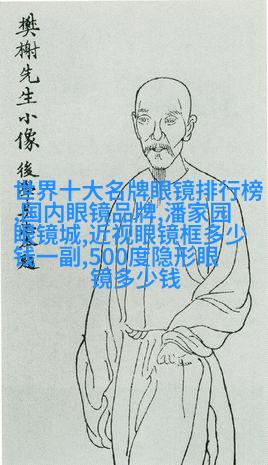 樊榭先生小像
後學
世界十大名牌眼镜排行榜
,国内眼镜品牌,潘家园
眼镜城,近视眼镜框多少
钱一副,500度隐形眼
镜多少钱